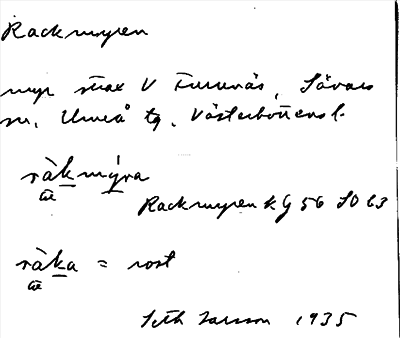 Rackmyren
myr strax V Furunäs, Sävars
sn, Umeå tg, Västerbottens l.
ràkmýra
æ
Rackmyren kg 56 SO 63
ràka = rost
æ
Seth Larsson 1935